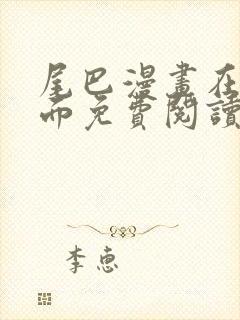 尾巴漫畫在
而免費閱讀
李惠